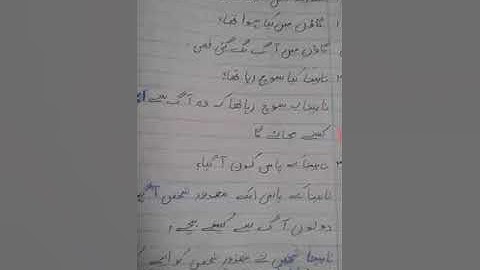 گاؤں میں کیا ہوا تھا؟
گاؤں میں آگ لگ گئی تھی
نابینا کیا سوچ رہا تھا؟
نابینا سوچ رہا تھا کہ وہ آگ سے
کیسے بچائے گا
نابینا کے پاس کون آ گیا؟
نابینا کے پاس ایک معذور شخص آ
دونوں آگ سے کیسے بچے؟
نابینا شخص نے معذور شخص کو اپنے